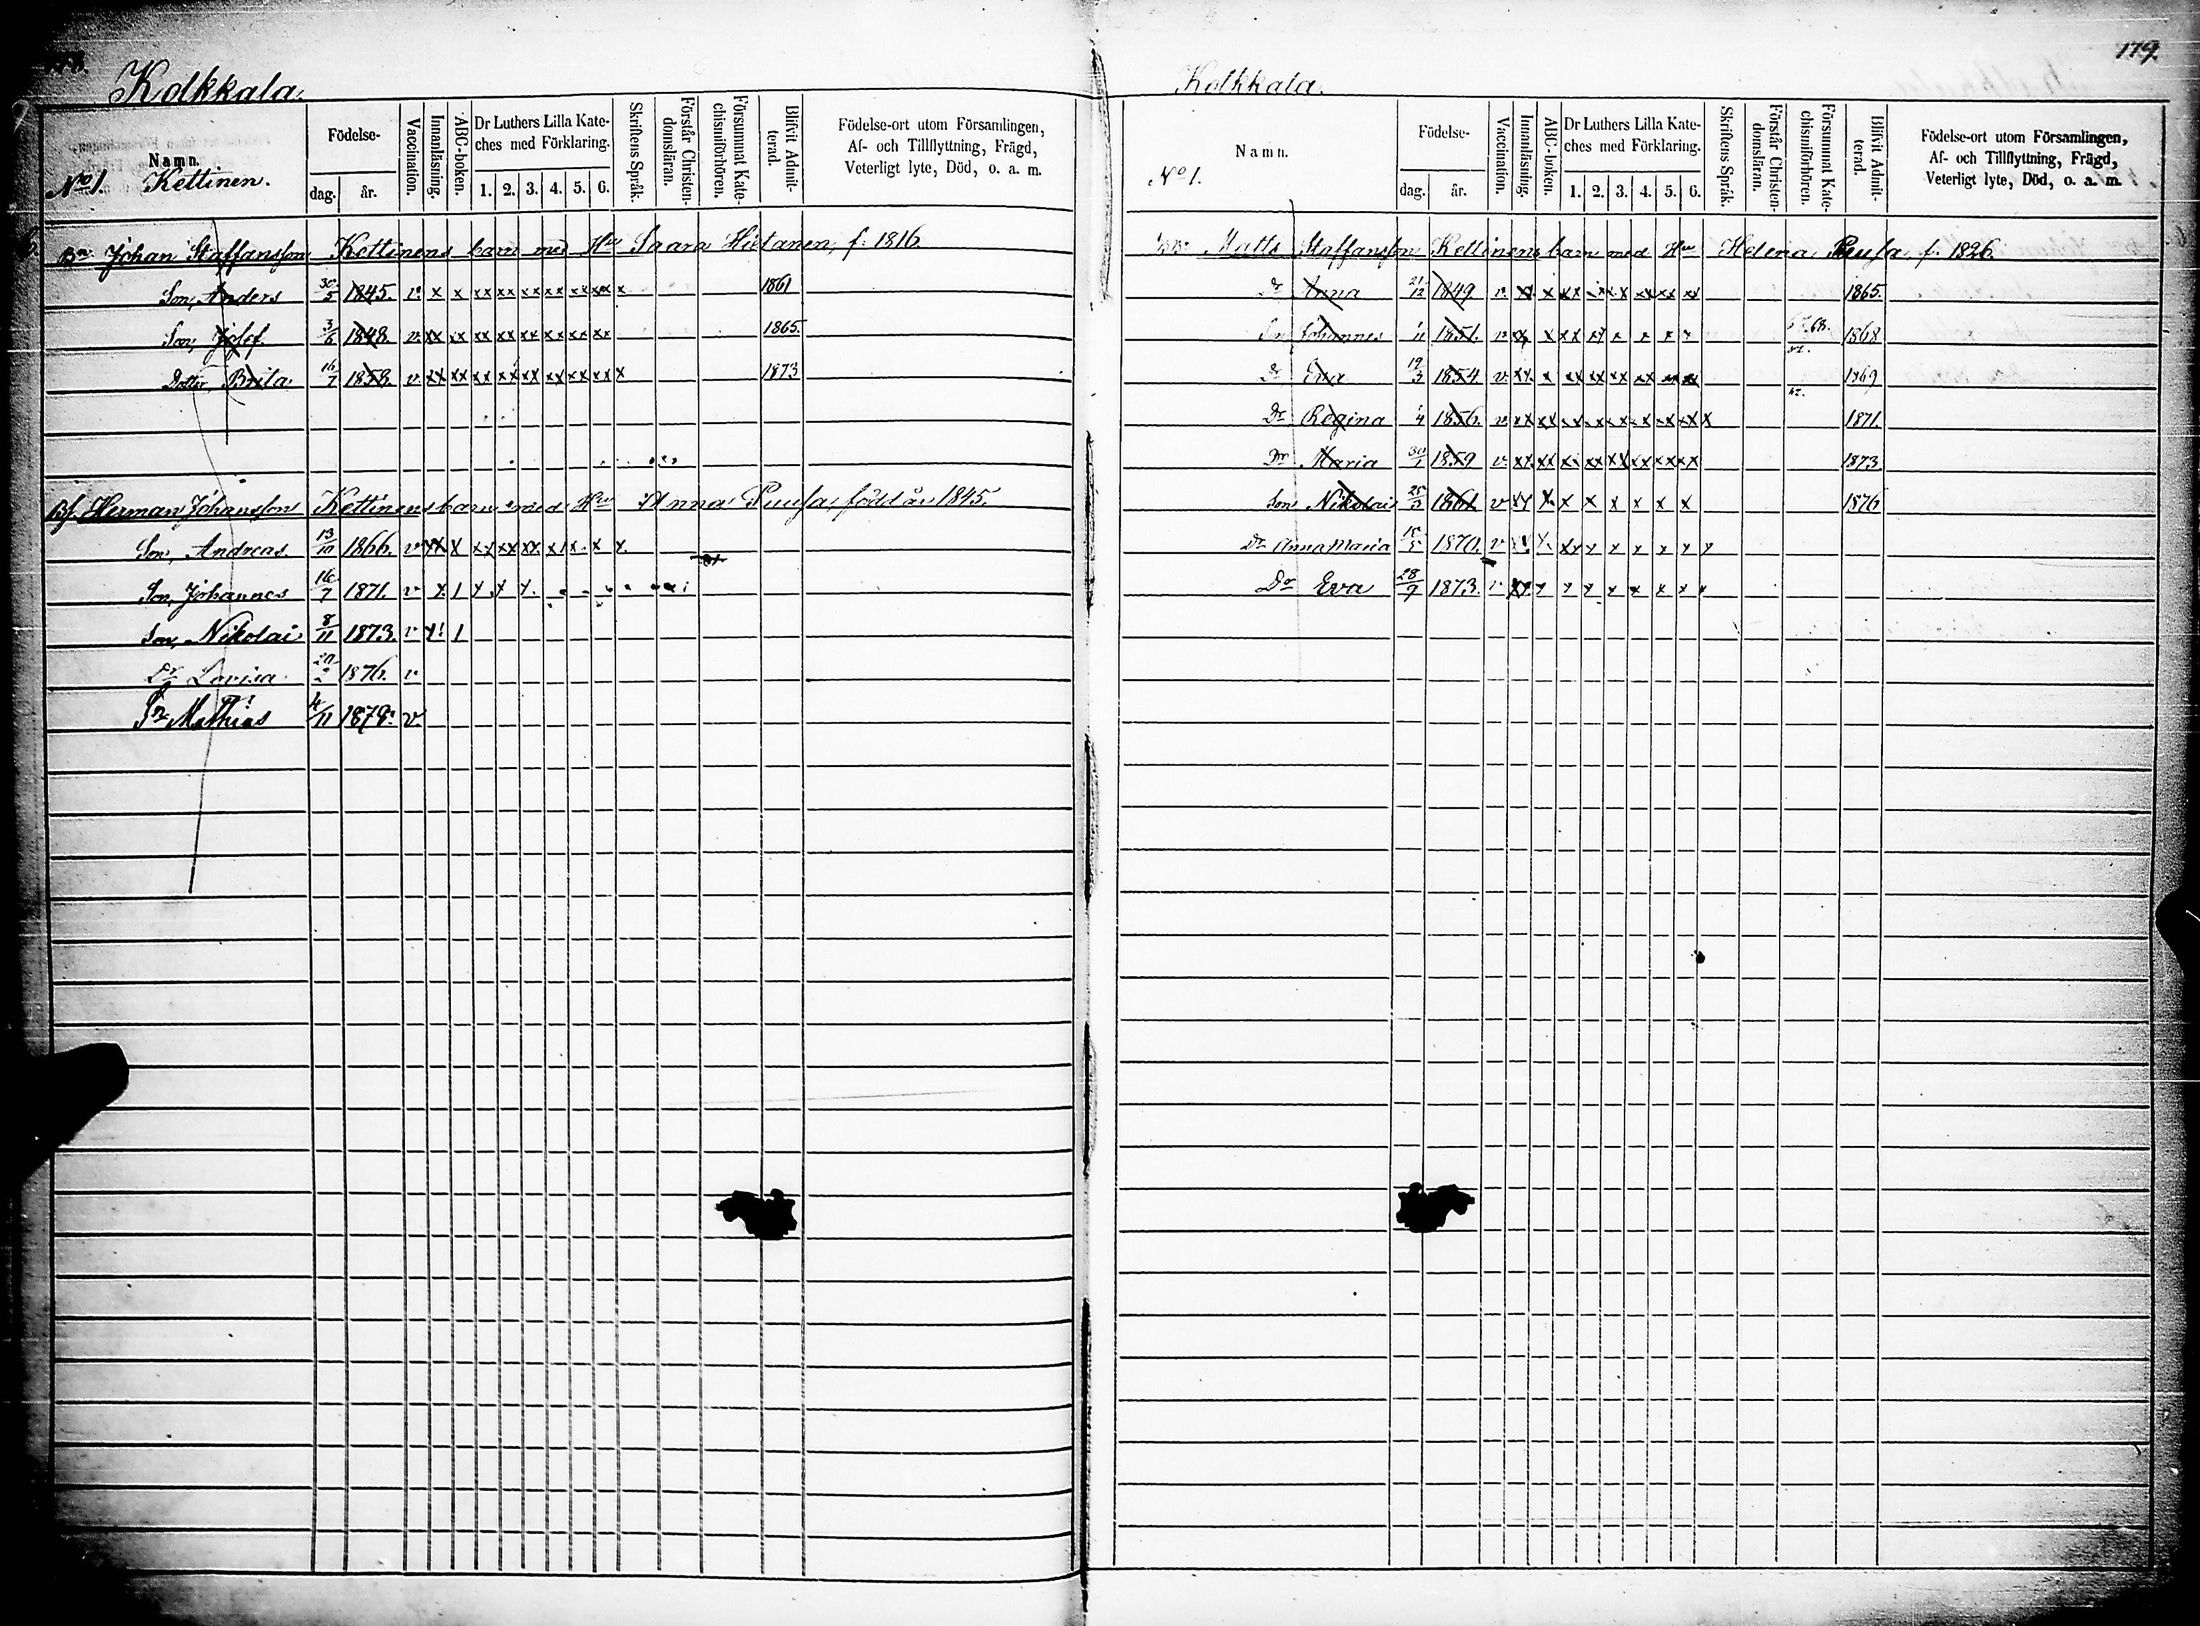 178.
Kolkkala.
Namn.
No 1. Kettinen.
Födelse-
dag. år.
Vaccination.
Innanläsning.
ABC-boken.
Dr Luthers Lilla Kate-
ches med Förklaring.
1. 2. 3. 4. 5. 6.
Skriftens Språk.
Förstår Christen-
domsläran.
Försummat Kate-
chismiförhören.
Blifvit Admit-
terad.
Födelse-ort utom Församlingen,
Af- och Tillflyttning, Frägd,
Veterligt lyte, Död, o. a. m.
Bn Johan Staffansson Kettinens barn med Hu Saara Hietanen, f. 1816
Son, Anders 30/5 1845. v. x x xx xx xx xx xx xx x 1861
Son, Josef 3/6 1848 v. xx xx xx xx xx xx xx xx 1865.
Dotter, Brita 16/7 1858 v. xx xx xx xx xx xx xx xx x 1873
Bf. Herman Johansson Kettinens barn med Hu Anna Puusa, född år 1845.
Son, Andreas 13/10 1866. v xx x xx xx xx x x x x
Son, Johannes 16/7 1871. v x 1 x x x
Son, Nikolai 8/11 1873. v x 1
Dr Lovisa 20/2 1876. v
Sn Mathias 4/11 1878. v
179.
Kolkkala.
Namn.
No 1.
Födelse-
dag. år.
Vaccination.
Innanläsning.
ABC-boken.
Dr Luthers Lilla Kate-
ches med Förklaring.
1. 2. 3. 4. 5. 6.
Skriftens Språk.
Förstår Christen-
domsläran.
Försummat Kate-
chismiförhören.
Blifvit Admit-
terad.
Födelse-ort utom Församlingen,
Af- och Tillflyttning, Frägd,
Veterligt lyte, Död, o. a. m.
Matts Staffansson Kettinens barn med Hu Helena Puusa f. 1826.
Dr Anna 21/12 1849 v. xx x xx xx xx xx xx 1865.
Son Johannes 1851. v xx x xx xx x x x x 1868
Dr Eva 19/3 1854 v. xx x xx xx xx xx xx xx 1869
Dr Regina 1856. v. xx xx xx xx xx xx xx xx x 1871.
Dr Maria 30/1 1859 v. xx xx xx xx xx xx xx xx 1873
Son Nikolai 25/3 1861 v xx x x x x x x x 1876
Dr Anna Maria 15/5 1870. v xx x xx x x x x x x
Dr Eva 28/9 1873. v xx x x x x x x x x